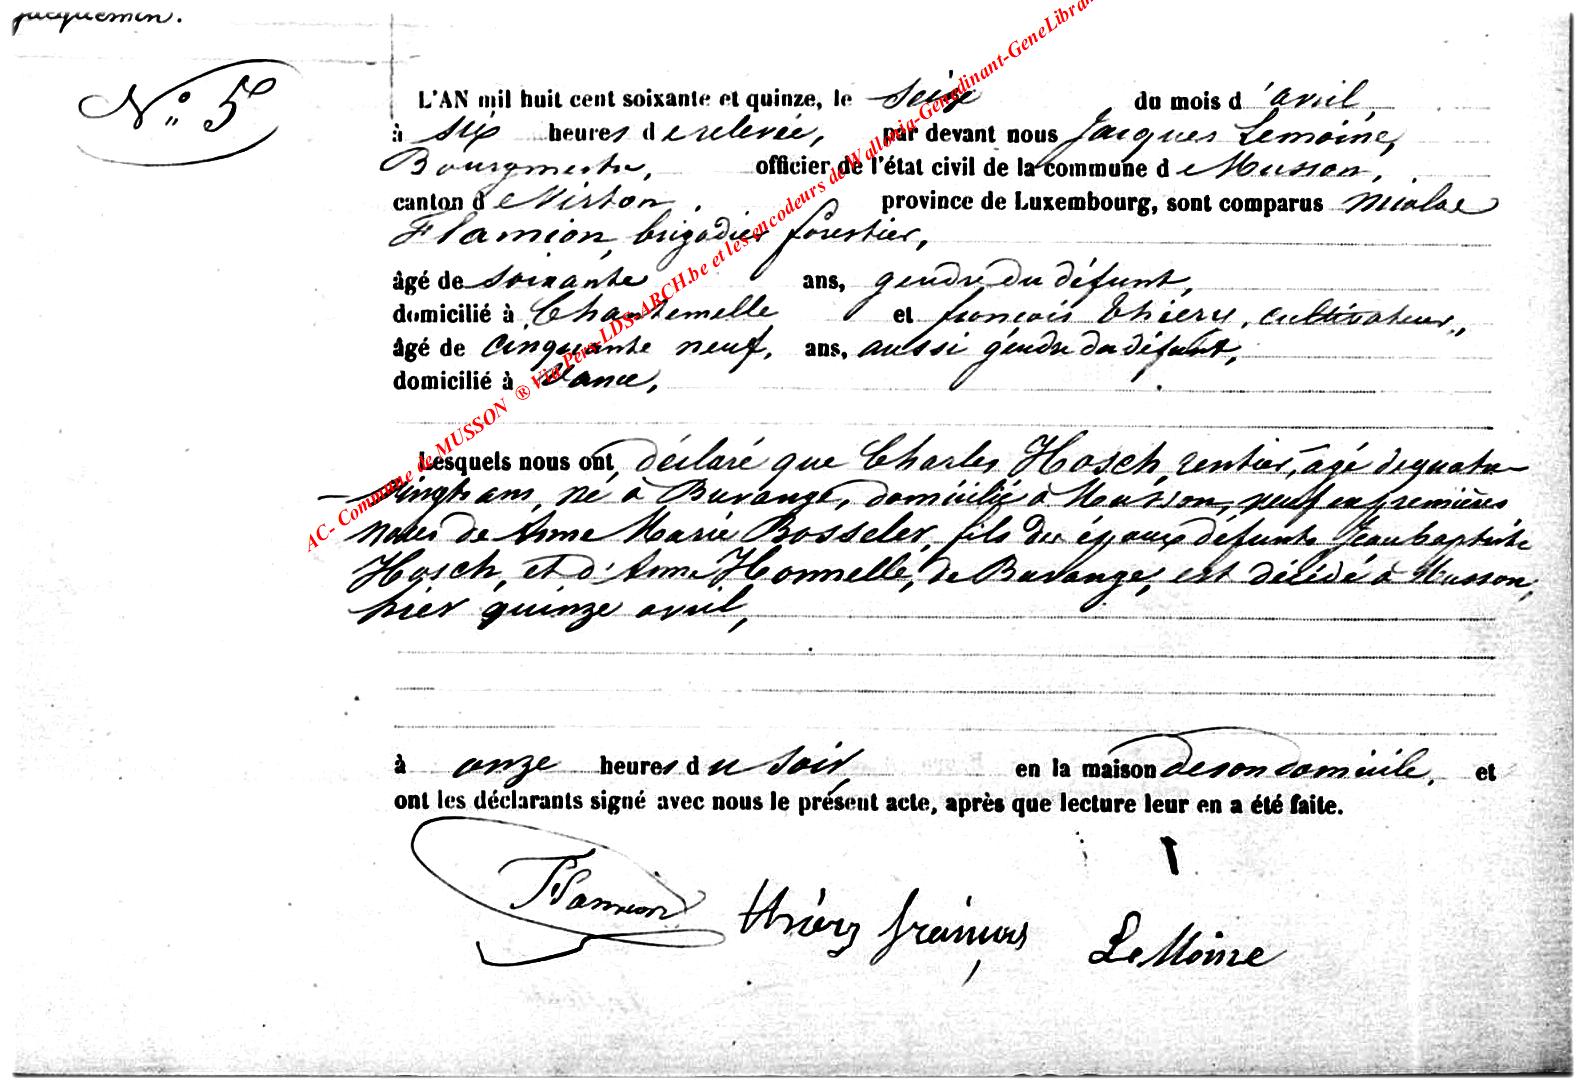 jacquemin.
N° 5
L'AN mil huit cent soixante et quinze, le seize du mois d'avril,
à six heures de relevée, par devant nous Jacques Lemoine,
Bourgmestre, officier de l'état civil de la commune de Musson,
canton de Virton, province de Luxembourg, sont comparus Nicolas
Flamion, brigadier forestier,
âgé de soixante ans, gendre du défunt,
domicilié à Chantemelle et françois Thiery, cultivateur,
âgé de cinquante neuf, ans, aussi gendre du défunt,
domicilié à
Lesquels nous ont déclaré que Charles Hosch, rentier, âgé de quatre-
vingt ans, né à Buvange, domicilié à Musson, veuf en premières
noces de Anne Marie Bosseler, fils des époux défunts Jean baptiste
Hosch, et d'Anne Honnelle, de Buvange, est décédé à Musson,
hier quinze avril,
à onze heures du soir, en la maison de son domicile, et
ont les déclarants signé avec nous le présent acte, après que lecture leur en a été faite.
Flamion Thiery françois LeMoine
AC- Commune de MUSSON ® Via Pers-LDS-ARCH.be et les encodeurs de Wallonia-Genedinant-GeneLibran